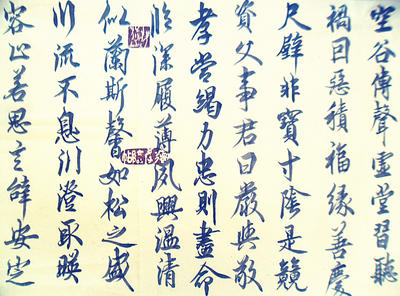 空谷傳聲虛堂習聽
禍因惡積福緣善慶
尺璧非寶寸陰是競
資父事君曰嚴與敬
孝當竭力忠則盡命
臨深履薄夙興溫凊
似蘭斯馨如松之盛
川流不息淵澄取暎
容止若思言辭安定